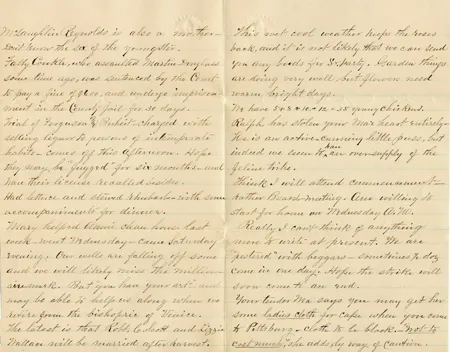 McLaughlin Reynolds is also a mother –
Don't know the sex of the youngster.
Tally Conkle, who assaulted Martin Douglass
some time ago, was sentenced by the Court
to pay a fine of $5.00, and undergo imprison-
ment in the County jail for 30 days.
Trial of Ferguson & – charged with
selling liquor to persons of intemperate
habits – comes off this afternoon. Hope
they may be jugged for six months – and
have their license revoked besides.
Had lettuce and stewed rhubarb – with some
accompaniments for dinner.
Mary helped Annie clean house last
week – went Wednesday – came Saturday
evening. Our wells are falling off some
and we will likely miss the million-
aire mark. But you have your "art" and
may be able to help us along when we
retire from the bishopric of Venice.
The latest is that Robt. C. Scott and Lizzie
Wallace will be married after harvest.
This wet cool weather keeps the roses
back, and it is not likely that we can send
you any buds for Saturday. Garden things
are doing very well, but flowers need
warm bright days.
We have 5+8+10+12 = 35 young chickens.
Ralph has stolen your Ma's heart entirely –
He is an active cunning little puss, but
indeed we seem to han an over-supply of the
feline tribe.
Think I will attend commencement –
rather Board-meeting. Am willing to
start for home on Wednesday P.M.
Really I can't think of anything
more to write at present. We are
"pestered" with beggars – sometimes ½ doz
come in one day. Hope the strike will
soon come to an end.
Your tender Ma says you may get her
some ladies cloth for cape when you come
to Pittsburg – cloth to be black – "Not to
cost much", she adds by way of caution.